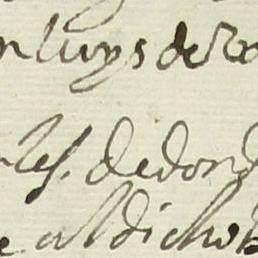 n luys de ro
les. de don
e al dicho